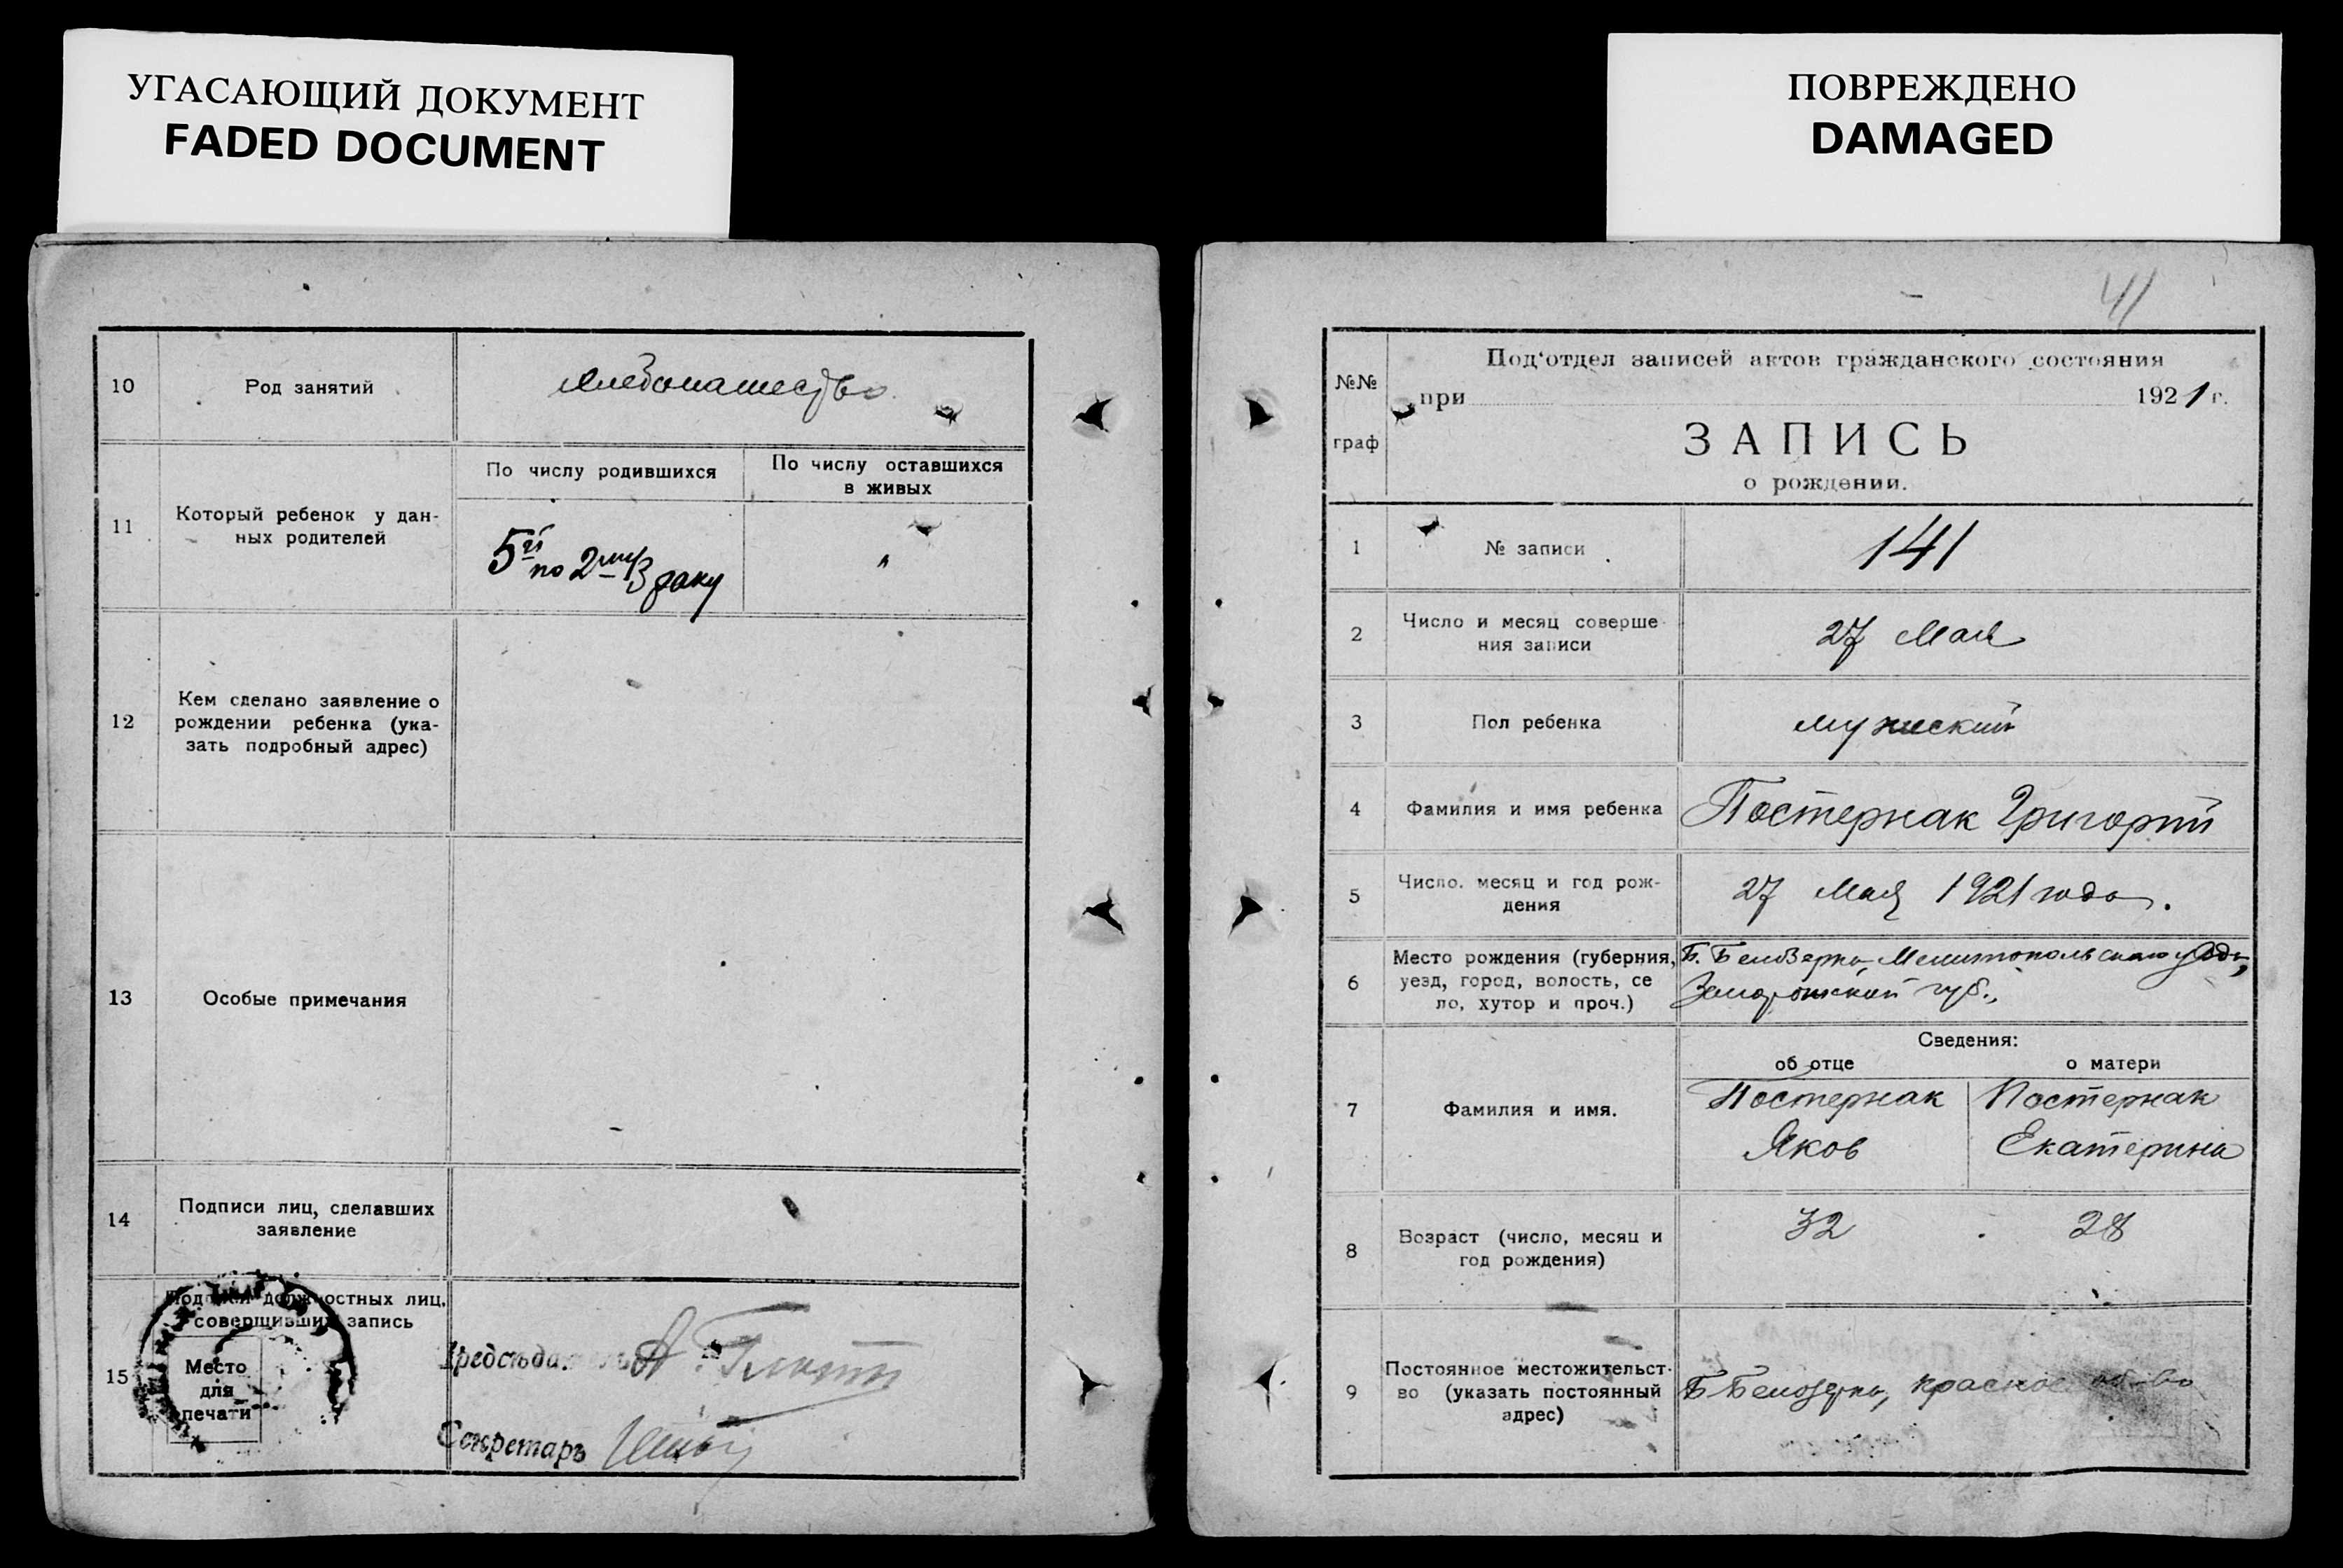 УГАСАЮЩИЙ ДОКУМЕНТ
FADED DOCUMENT
10
Род занятий
хлебопашество
11
Который ребенок у дан-
ных родителей
По числу родившихся
По числу оставшихся
в живых
5й по 2му браку
"
12
Кем сделано заявление о
рождении ребенка (ука-
зать подробный адрес)
13
Особые примечания
14
Подписи лиц, сделавших
заявление
15
Подписи должностных лиц,
совершивших запись
Место
для
печати
Председатель А.
Секретарь
ПОВРЕЖДЕНО
DAMAGED
41
№№
граф
Под'отдел записей актов гражданского состояния
при 1921 г.
ЗАПИСЬ
о рождении.
1
№ записи
141
2
Число и месяц соверше-
ния записи
27 Мая
3
Пол ребенка
мужеский
4
Фамилия и имя ребенка
Постернак Григорий
5
Число. месяц и год рож-
дения
27 Мая 1921 года.
6
Место рождения (губерния,
уезд, город, волость, се
ло, хутор и проч.)
Б. Белозерка, Мелитопольского уезда,
Запорожской губ.,
Сведения:
об отце
о матери
7
Фамилия и имя.
Постернак
Яков
Постернак
Екатерина
8
Возраст (число, месяц и
год рождения)
32
28
9
Постоянное местожительст-
во (указать постоянный
адрес)
Б Белозерка, красное об-во